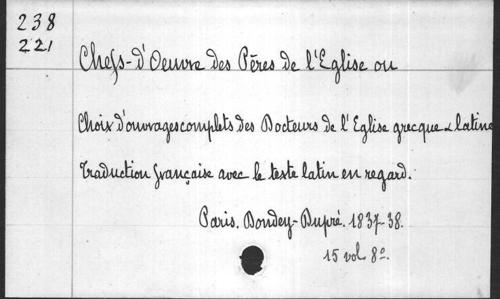 238
221
Chefs-d'Oeuvre des Pères de l'Eglise ou
Choix d'ouvrages complets des Docteurs de l'Eglise grecque & latine
Traduction française avec le texte latin en regard.
Paris. Bondey-Dupré. 1837-38.
15 vol 8º.